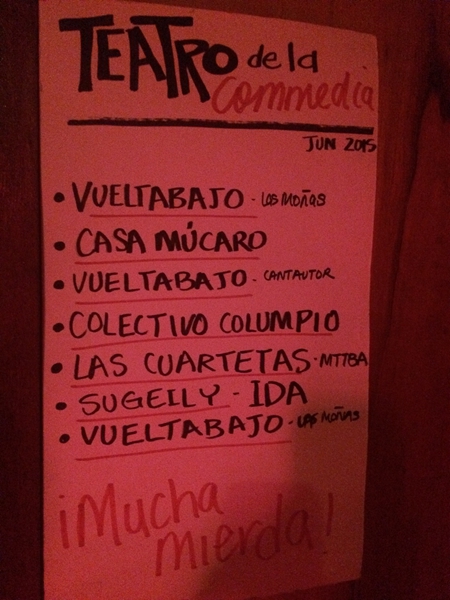 TEATRO de la
Commedia
JUN 2015
• VUELTABAJO - LAS MOÑAS
• CASA MÚCARO
• VUELTABAJO - CANTAUTOR
• COLECTIVO COLUMPIO
• LAS CUARTETAS - MTTBA
• SUGEILY - IDA
• VUELTABAJO - LAS MOÑAS
¡Mucha
mierda!